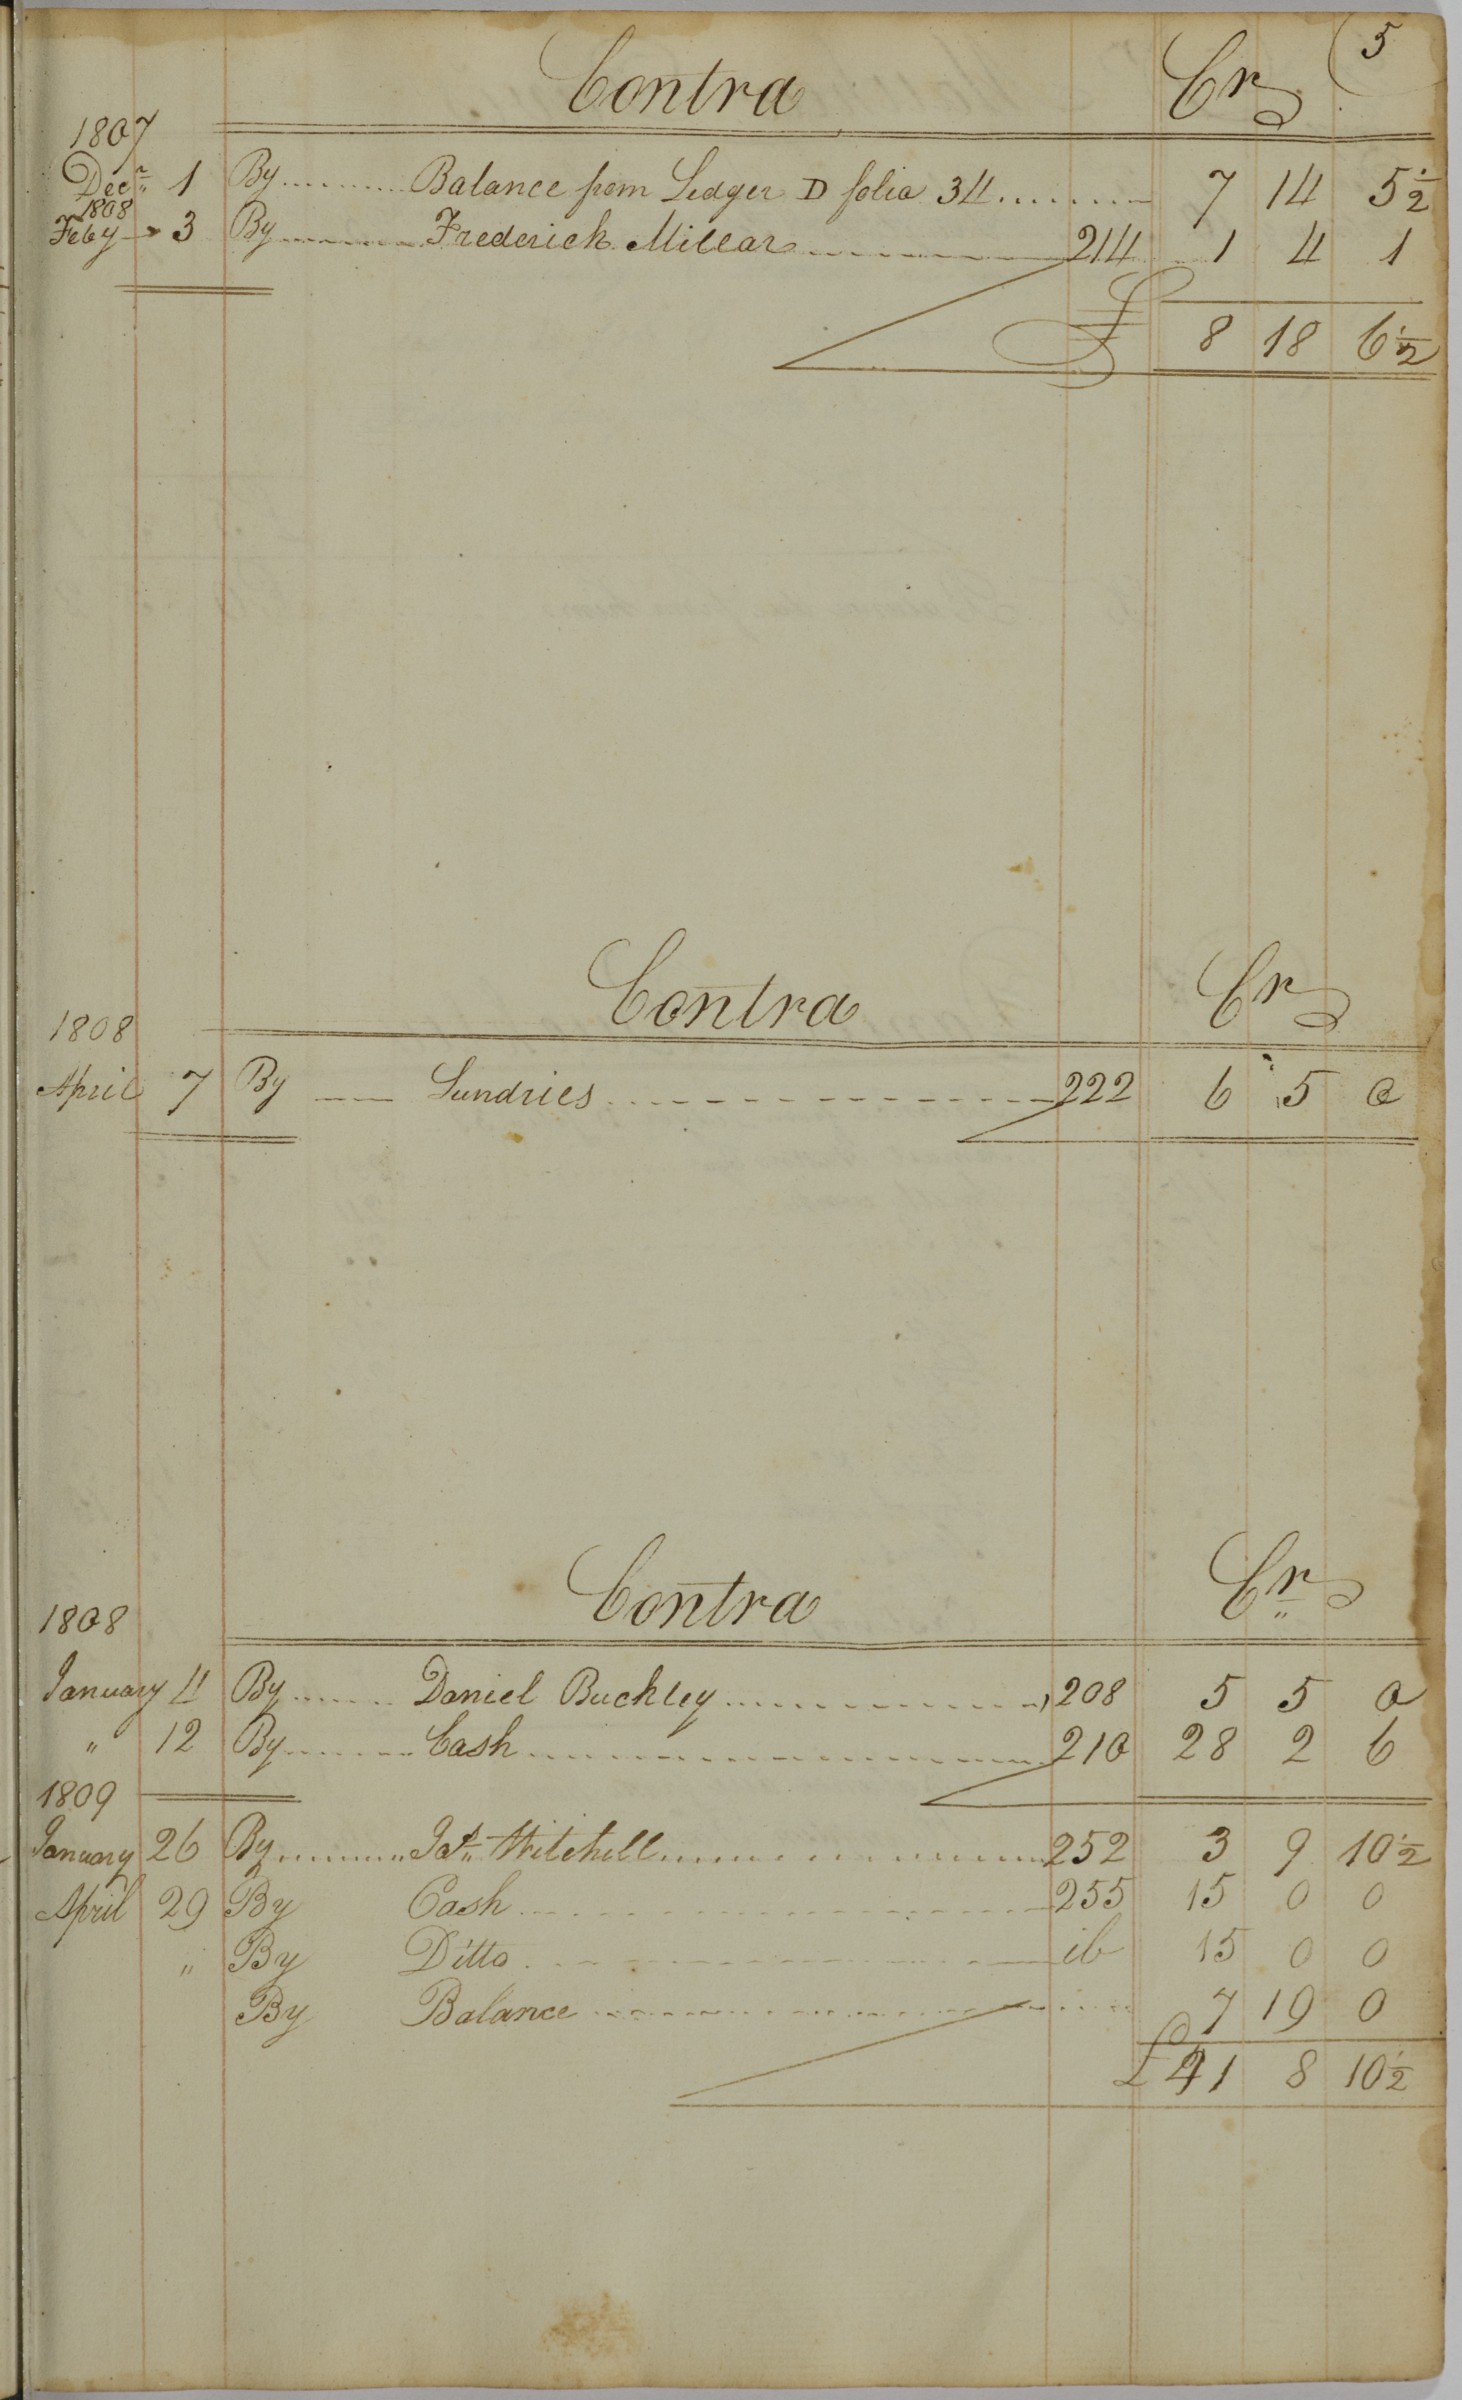 Contra Cr 5
1807
Decr 1 By Balance from Ledger D folio 34 7 14 5½
1808
Feby 3 By Frederick Millar 214 1 4 1
£ 8 18 6½
Contra Cr
1808
April 7 By Sundries 222 6 5 0
Contra Cr
1808
January 11 By Daniel Buckley 208 5 5 0
" 12 By Cash 210 28 2 6
1809
January 26 By Jas Mitchell 252 3 9 10½
April 29 By Cash 255 15 0 0
" By Ditto ib 15 0 0
By Balance 7 19 0
£ 41 8 10½